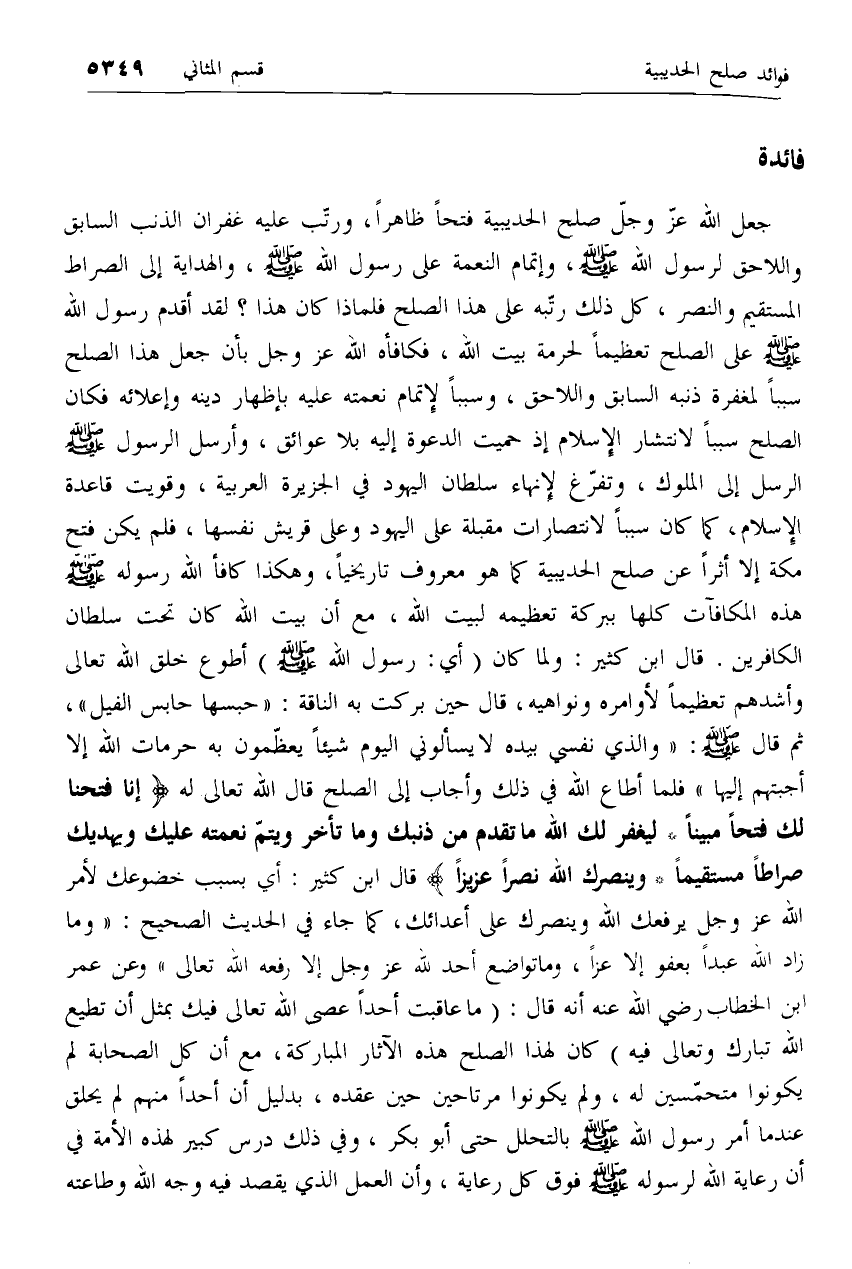 فوائد صلح الحديبية قسم المثاني ٥٣٤٩
فائدة
جعل الله عزّ وجلّ صلح الحديبية فتحاً ظاهراً، ورتّب عليه غفران الذنب السابق
واللاحق لرسول الله ﷺ، وإتمام النعمة على رسول الله ﷺ ، والهداية إلى الصراط
المستقيم والنصر ، كل ذلك رتّبه على هذا الصلح فلماذا كان هذا ؟ لقد أقدم رسول الله
ﷺ على الصلح تعظيماً لحرمة بيت الله ، فكافأه الله عز وجل بأن جعل هذا الصلح
سبباً لمغفرة ذنبه السابق واللاحق ، وسبباً لإتمام نعمته عليه بإظهار دينه وإعلائه فكان
الصلح سبباً لانتشار الإسلام إذ حميت الدعوة إليه بلا عوائق ، وأرسل الرسول ﷺ
الرسل إلى الملوك ، وتفرّغ لإنهاء سلطان اليهود في الجزيرة العربية ، وقويت قاعدة
الإسلام، كما كان سبباً لانتصارات مقبلة على اليهود وعلى قريش نفسها ، فلم يكن فتح
مكة إلا أثراً عن صلح الحديبية كما هو معروف تاريخياً، وهكذا كافأ الله رسوله ﷺ
هذه المكافآت كلها ببركة تعظيمه لبيت الله ، مع أن بيت الله كان تحت سلطان
الكافرين . قال ابن كثير : ولما كان ( أي: رسول الله ﷺ ) أطوع خلق الله تعالى
وأشدهم تعظيماً لأوامره ونواهيه، قال حين بركت به الناقة : «حبسها حابس الفيل»،
ثم قال ﷺ: « والذي نفسي بيده لايسألوني اليوم شيئاً يعظّمون به حرمات الله إلا
أجبتهم إليها » فلما أطاع الله في ذلك وأجاب إلى الصلح قال الله تعالى له ﴿ إنا فتحنا
لك فتحاً مبيناً * ليغفر لك الله ماتقدم من ذنبك وما تأخر ويتمّ نعمته عليك ويهديك
صراطاً مستقيماً * وينصرك الله نصراً عزيزاً ﴾ قال ابن كثير : أي بسبب خضوعك لأمر
الله عز وجل يرفعك الله وينصرك على أعدائك، كما جاء في الحديث الصحيح : « وما
زاد الله عبداً بعفو إلا عزاً ، وماتواضع أحد لله عز وجل إلا رفعه الله تعالى » وعن عمر
ابن الخطاب رضي الله عنه أنه قال : ( ماعاقبت أحداً عصى الله تعالى فيك بمثل أن تطيع
الله تبارك وتعالى فيه ) كان لهذا الصلح هذه الآثار المباركة، مع أن كل الصحابة لم
يكونوا متحمّسين له ، ولم يكونوا مرتاحين حين عقده ، بدليل أن أحداً منهم لم يحلق
عندما أمر رسول الله ﷺ بالتحلل حتى أبو بكر ، وفي ذلك درس كبير لهذه الأمة في
أن رعاية الله لرسوله ﷺ فوق كل رعاية ، وأن العمل الذي يقصد فيه وجه الله وطاعته